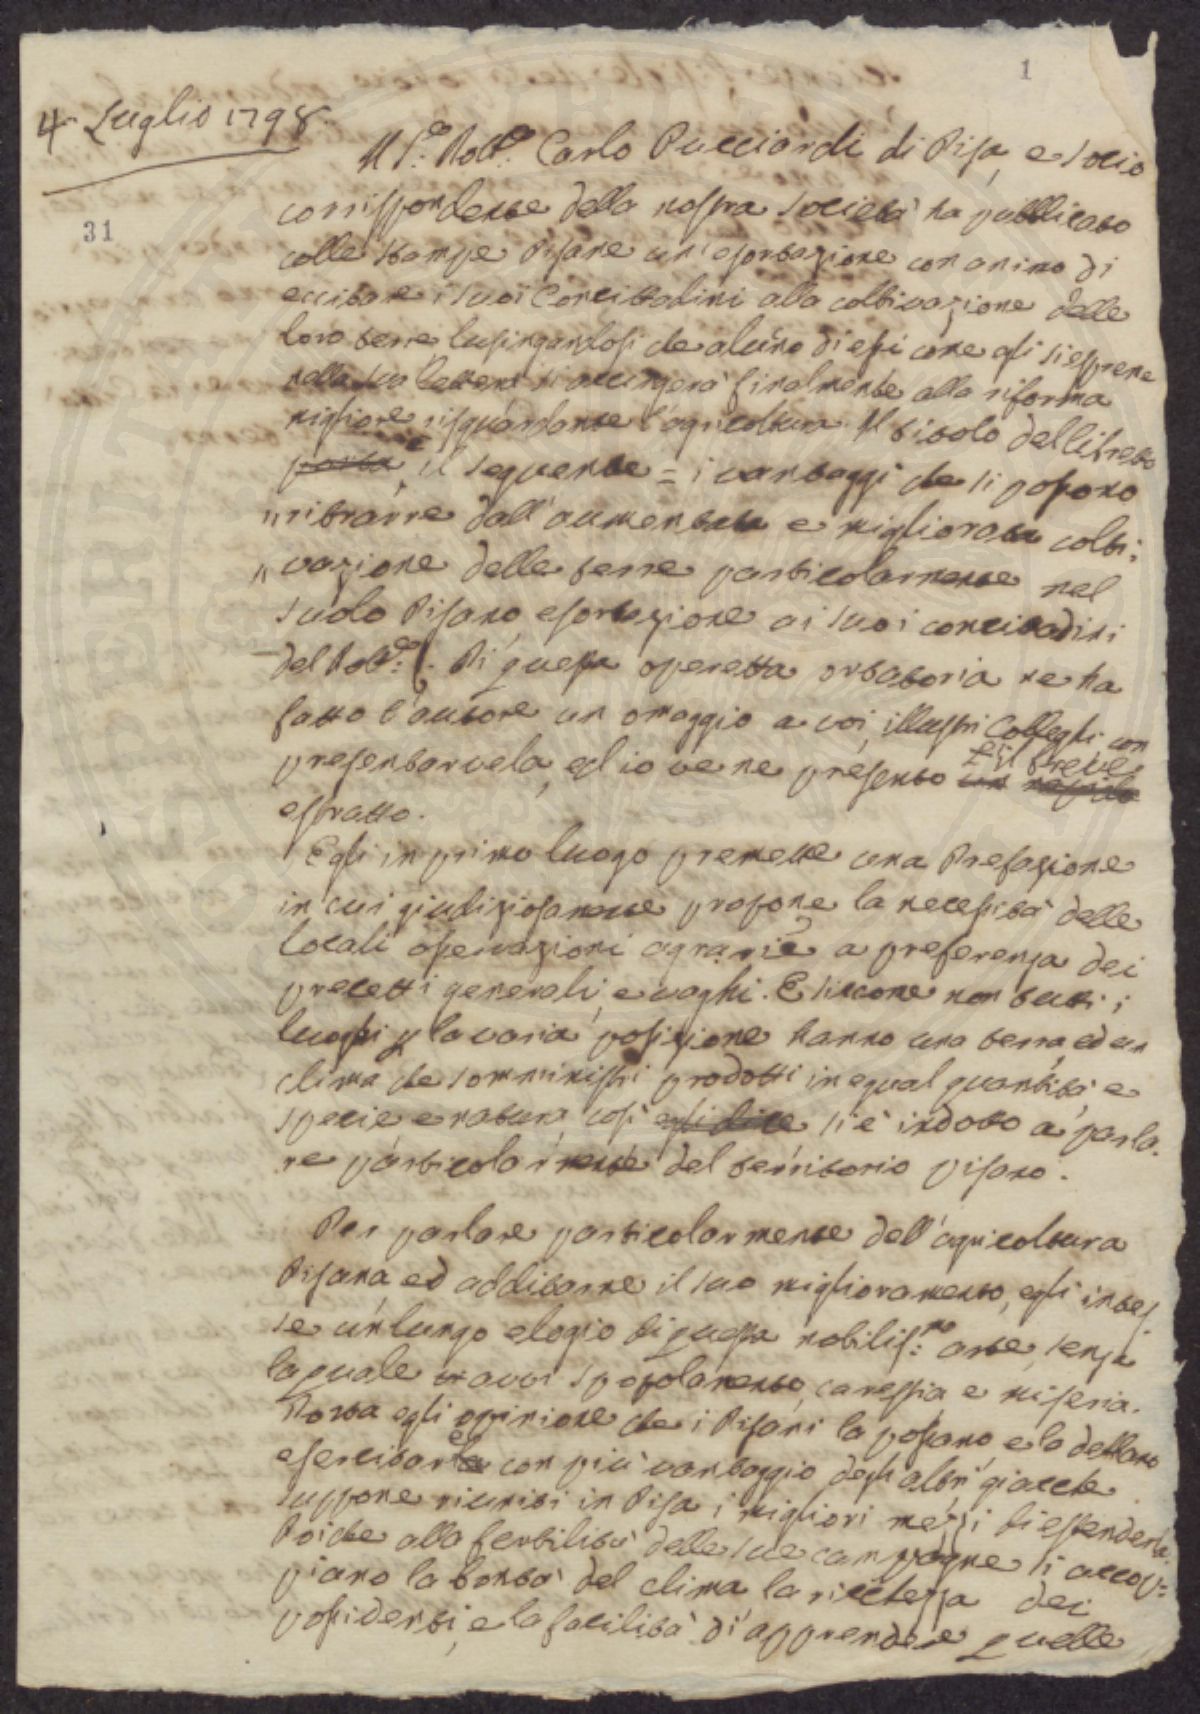 1
4. Luglio 1798
31
Il S.r Dott.e Carlo Pucciardi di Pisa, e socio
corrispondente della nostra società ha pubblicato
colle stampe Pisane un'esortazione con animo di
eccitare i suoi Concittadini alla coltivazione delle
loro terre, lusingandosi che alcuno di essi come egli si esprime
nella sua lettera si accingerà finalmente alla riforma
migliore risguardante l'agricoltura. Il titolo del libretto
porta è il seguente = i vantaggi che si possono
"ritrarre dall'aumentata e migliorata colti:
"vazione delle terre particolarmente nel
suolo Pisano, esortazione ai suoi concittadini
del Dott.e Di questa operetta oratoria ne ha
fatto l'autore un omaggio a voi, illustri Colleghi, con
presentarvela, ed io ve ne presento il breve
estratto.
Egli in primo luogo premette una Prefazione
in cui giudiziosamente propone la necessità delle
locali osservazioni agrarie a preferenza dei
precetti generali, e vaghi. E siccome non tutti i
luoghi p la varia posizione hanno una terra, ed un
clima che somministri prodotti in egual quantità e
specie e natura, così egli dice si è indotto a parla.
re particolarmente del territorio pisano.
Per parlare particolarmente dell'agricoltura
Pisana, ed additarne il suo miglioramento, egli intes,
se un lungo elogio di questa nobiliss:mo arte, senza
la quale trovi spopolamento, carestia, e miseria.
Porta egli opinione che i Pisani la possano, e la debbano
esercitarla con più vantaggio degli altri giacchè
suppone riuniti in Pisa i migliori mezzi di estenderla.
Poichè alla fertilità delle sue campagne si accop=
piano la bontà del clima la ricchezza dei
possidenti, e la facilità di apprendere quelle